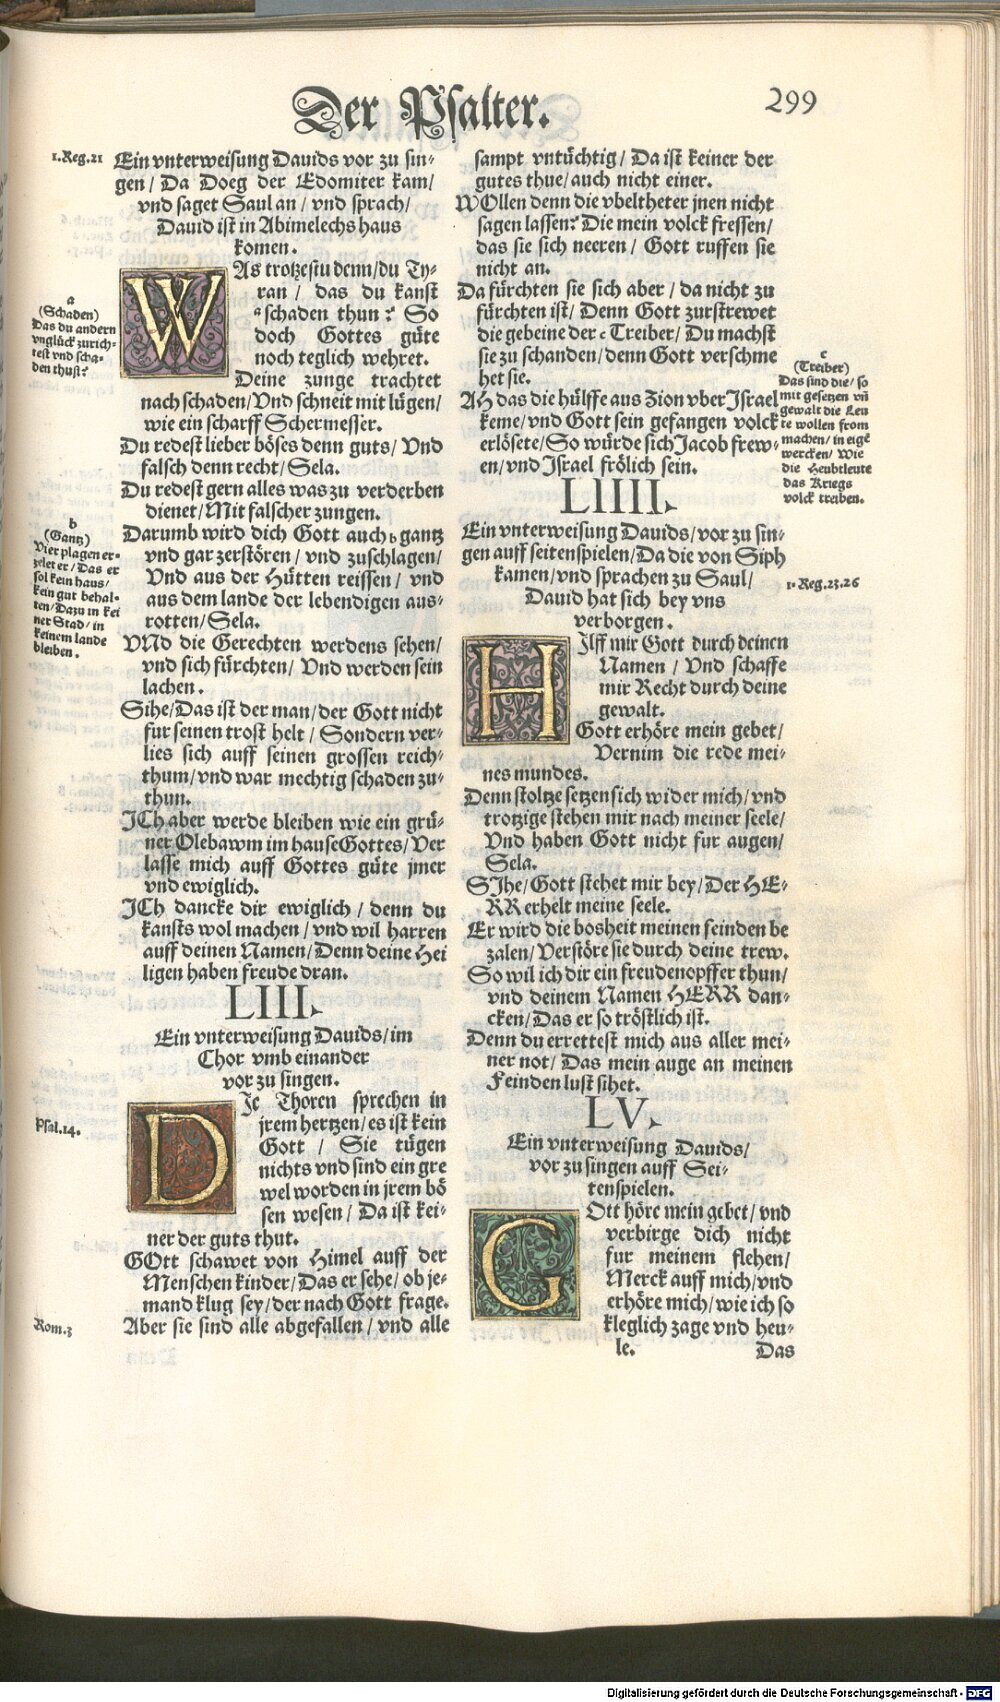 Der Psalter.
299
1.Reg.21
Ein vnterweisung Dauids vor zu sin-
gen / Da Doeg der Edomiter kam /
vnd saget Saul an / vnd sprach /
Dauid ist in Abimelechs haus
komen.
WAs trotzestu denn / du Ty-
ran / das du kanst
a schaden thun? So
doch Gottes güte
noch teglich wehret.
Deine zunge trachtet
nach schaden / Vnd schneit mit lügen /
wie ein scharff Schermesser.
Du redest lieber böses denn guts / Vnd
falsch denn recht / Sela.
Du redest gern alles was zu verderben
dienet / Mit falscher zungen.
Darumb wird dich Gott auch b gantz
vnd gar zerstören / vnd zuschlagen /
Vnd aus der Hütten reissen / vnd
aus dem lande der lebendigen aus-
rotten / Sela.
VNd die Gerechten werdens sehen /
vnd sich fürchten / Vnd werden sein
lachen.
Sihe / Das ist der man / der Gott nicht
fur seinen trost helt / Sondern ver-
lies sich auff seinen grossen reich-
thum / vnd war mechtig schaden zu-
thun.
ICh aber werde bleiben wie ein grü-
ner Olebawm im hause Gottes / Ver
lasse mich auff Gottes güte jmer
vnd ewiglich.
ICh dancke dir ewiglich / denn du
kansts wol machen / vnd wil harren
auff deinen Namen / Denn deine Hei
ligen haben freude dran.
LIII.
Ein vnterweisung Dauids / im
Chor vmb einander
vor zu singen.
DIe Thoren sprechen in
jrem hertzen / es ist kein
Gott / Sie tügen
nichts vnd sind ein gre
wel worden in jrem bö
sen wesen / Da ist kei-
ner der guts thut.
GOtt schawet von Himel auff der
Menschen kinder / Das er sehe / ob je-
mand klug sey / der nach Gott frage.
Aber sie sind alle abgefallen / vnd alle
a
(Schaden)
Das du andern
vnglück zurich-
test vnd scha-
den thust?
b
(Gantz)
Vier plagen er-
zelet er / Das er
sol kein haus /
kein gut behal-
ten / Dazu in kei
ner Stad / in
keinem lande
bleiben.
Psal.14.
Rom.3
sampt vntüchtig / Da ist keiner der
gutes thue / auch nicht einer.
WOllen denn die vbeltheter jnen nicht
sagen lassen? Die mein volck fressen /
das sie sich neeren / Gott ruffen sie
nicht an.
Da fürchten sie sich aber / da nicht zu
fürchten ist / Denn Gott zurstrewet
die gebeine der c Treiber / Du machst
sie zu schanden / denn Gott verschme
het sie.
AH das die hülffe aus Zion vber Israel
keme / vnd Gott sein gefangen volck
erlösete / So würde sich Jacob frew-
en / vnd Israel frölich sein.
LIIII.
Ein vnterweisung Dauids / vor zu sin-
gen auff seitenspielen / Da die von Siph
kamen / vnd sprachen zu Saul /
Dauid hat sich bey vns
verborgen.
HIlff mir Gott durch deinen
Namen / Vnd schaffe
mir Recht durch deine
gewalt.
Gott erhöre mein gebet /
Vernim die rede mei-
nes mundes.
Denn stoltze setzen sich wider mich / vnd
trotzige stehen mir nach meiner seele /
Vnd haben Gott nicht fur augen /
Sela.
SIhe / Gott stehet mir bey / Der HE-
RR erhelt meine seele.
Er wird die bosheit meinen feinden be
zalen / Verstöre sie durch deine trew.
So wil ich dir ein freudenopffer thun /
vnd deinem Namen HERR dan-
cken / Das er so tröstlich ist.
Denn du errettest mich aus aller mei-
ner not / Das mein auge an meinen
Feinden lust sihet.
LV.
Ein vnterweisung Dauids /
vor zu singen auff Sei-
tenspielen.
GOtt höre mein gebet / vnd
verbirge dich nicht
fur meinem flehen /
Merck auff mich / vnd
erhöre mich / wie ich so
kleglich zage vnd heu-
le.
Das
c
(Treiber)
Das sind die / so
mit gesetzen vn̄
gewalt die Leu
te wollen from
machen / in eigē
wercken / Wie
die Heubtleute
das Kriegs
volck treiben.
1.Reg.23.26
Digitalisierung gefördert durch die Deutsche Forschungsgemeinschaft - DFG